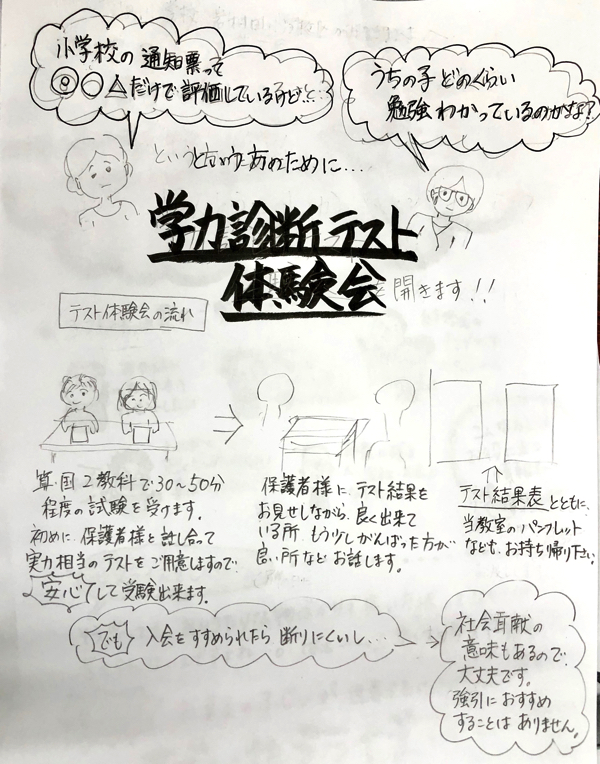 小学校の通知票って
◎○△だけで評価しているけど…
うちの子どのくらい
勉強わかっているのかな?
というとちゅうなあなたのために…
学力診断テスト
体験会を開きます!!
テスト体験会の流れ
算・国2教科で30〜50分
程度の試験を受けます。
初めに、保護者様と話し合って
実力相当のテストをご用意しますので、
安心して受験出来ます。
保護者様に、テスト結果を
お見せしながら、良く出来て
いる所、もう少しがんばった方が
良い所などお話します。
テスト結果表とともに、
当教室のパンフレット
なども、お持ち帰り下さい。
でも 入会をすすめられたら断りにくいし…
社会貢献の
意味もあるので、
大丈夫です。
強引におすすめ
することはありません。